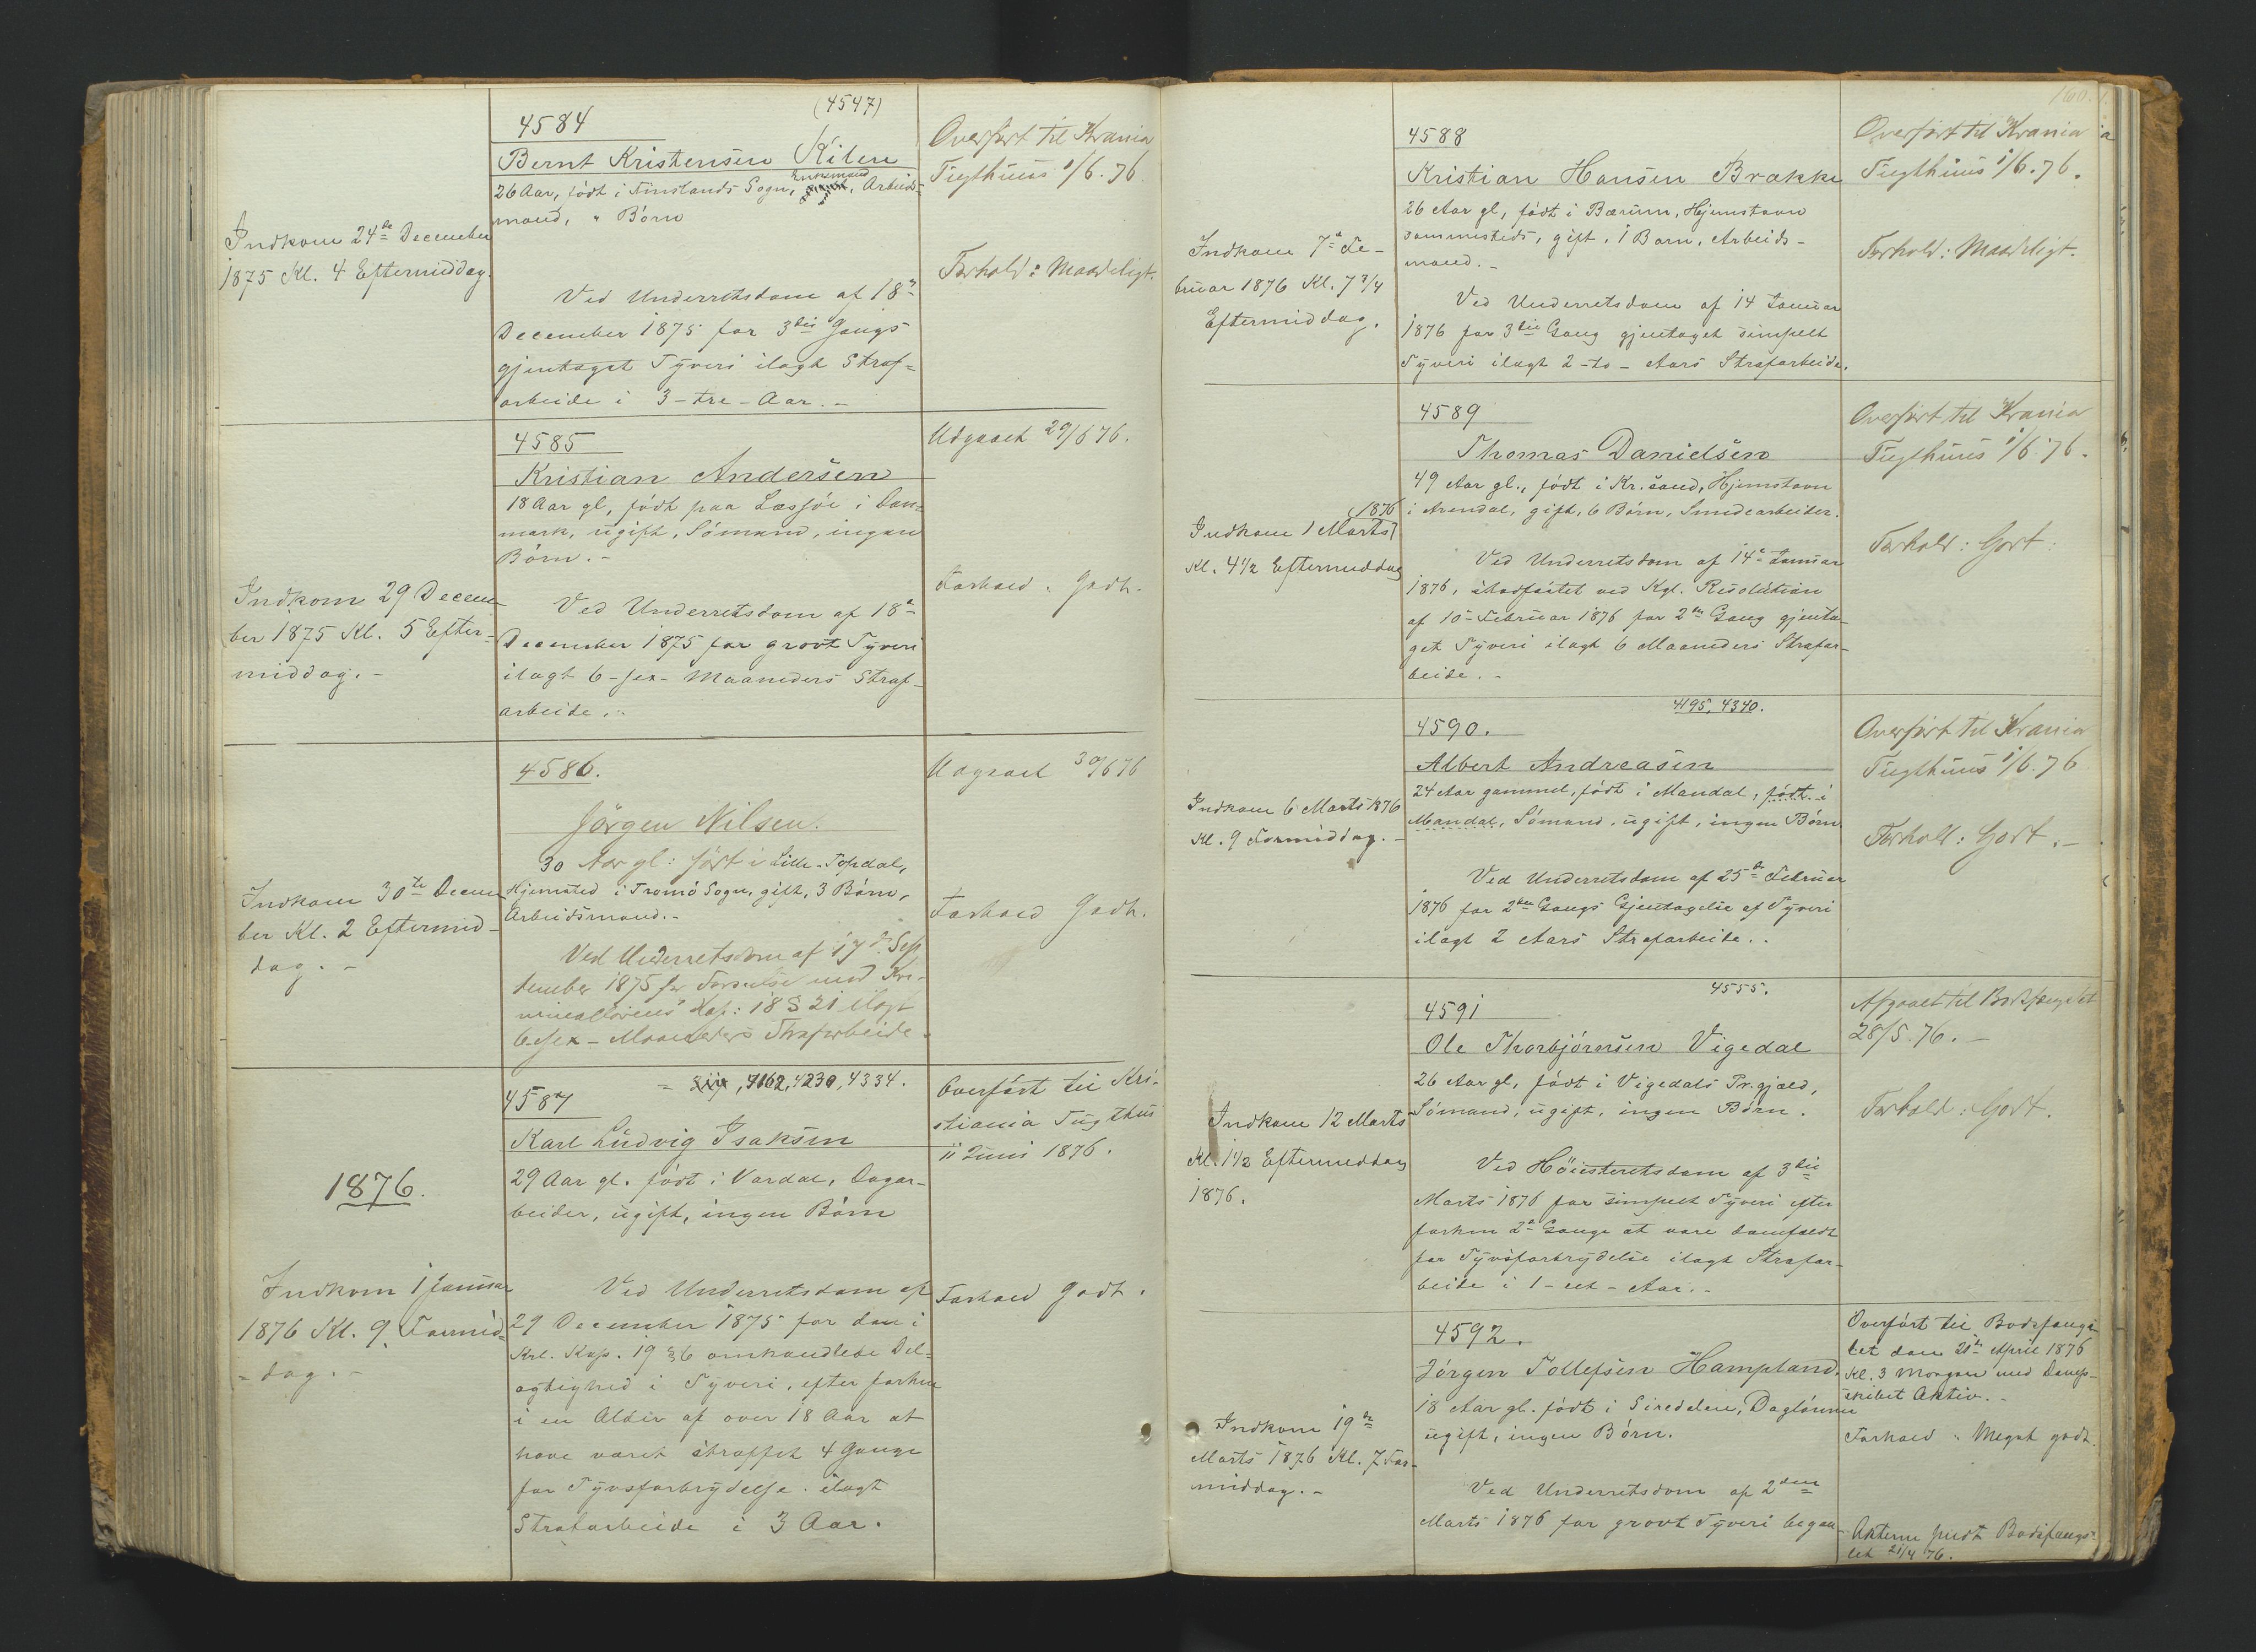 4584
(4547)
Bernt Kristensen Kilen
26 Aar, født i Finslands Sogn, Enkemand, Arbeids-
mand, " Børn
Indkom 24de December
1875 Kl. 4 Eftermiddag.
Ved Underretsdom af 18de
December 1875 for 3die Gangs
gjentaget Tyveri ilagt Straf-
arbeide i 3 - tre - Aar. -
Overført til Krania
Tugthuus 1/6. 76.
Forhold: Maadeligt.
4585
Kristian Andersen
18 Aar gl, født paa Læssøe i Dan-
mark, ugift, Sømand, ingen
Børn. -
Indkom 29 Decem-
ber 1875 Kl. 5 Efter-
middag. -
Ved Underretsdom af 18de
December 1875 for grovt Tyveri
ilagt 6 - sex - Maaneders Straf-
arbeide. -
Udgaaet 29/6 76.
Forhold. Godt.
4586.
Jørgen Nilsen.
30 Aar gl: født i Lille-Topdal,
Hjemsted i Tromø Sogn, gift, 3 Børn,
Arbeidsmand. -
Indkom 30te Decem-
ber Kl. 2 Eftermid-
dag. -
Ved Underretsdom af 17de Sep-
tember 1875 for Forseelse mod Kri-
minallovens Kap: 18 § 21 ilagt
6 - sex - Maaneders Strafarbeide.
Udgaaet 30/6 76
Forhold Godt.
4587
, 4162, 4230, 4334.
Karl Ludvig Isaksen
29 Aar gl. født i Vardal, Dagar-
beider, ugift, ingen Børn
1876.
Indkom 1 Januar
1876 Kl. 9 Formid-
- dag. -
Ved Underretsdom af
29 December 1875 for den i
Krl. Kap. 19 § 6 omhandlede Del-
agtighed i Tyveri, efter forhen
i en Alder af over 18 Aar at
have været straffet 4 Gange
for Tyvsforbrydelse. ilagt
Strafarbeide i 3 Aar.
Overført til Kri-
stiania Tugthus
1 Juni 1876.
Forhold Godt.
160.
4588
Kristian Hansen Brække
26 Aar gl, født i Bærum, Hjemstavn
sammesteds, gift, 1 Barn, Arbeids-
mand. -
Indkom 7de Fe-
bruar 1876 Kl. 7 3/4
Eftermiddag.
Ved Underretsdom af 14 Januar
1876 for 3die Gang gjentaget simpelt
Tyveri ilagt 2 - to - Aars Strafarbeide.
Overført til Krania
Tugthuus 1/6. 76.
Forhold: Maadeligt.
4589
Thomas Danielsen
49 Aar gl., født i Kr.sand, Hjemstavn
i Arendal, gift, 6 Børn, Smedearbeider.
Indkom 1 Marts 1876
Kl. 4 1/2 Eftermiddag
Ved Underretsdom af 14de Januar
1876, stadfæstet ved Kgl. Resolution
af 10 Februar 1876 for 2den Gang gjenta-
get Tyveri ilagt 6 Maaneders Strafar-
beide. -
Overført til Krania
Tugthuus 1/6 76.
Forhold: Godt.
4195, 4340.
4590.
Albert Andreasen
24 Aar gammel, født i Mandal, født i
Mandal, Sømand, ugift, ingen Børn.
Indkom 6 Marts 1876
Kl. 9 Formiddag. -
Ved Underretsdom af 25de Februar
1876 for 2den Gangs Gjentagelse af Tyveri
ilagt 2 Aars Strafarbeide. -
Overført til Krania
Tugthuus 1/6. 76
Forhold: Godt. -
4555.
4591
Ole Thorbjørnsen Vigedal
26 Aar gl, født i Vigedals Pr.gjæld,
Sømand, ugift, ingen Børn.
Indkom 12 Marts
Kl. 1 1/2 Eftermiddag
1876.
Ved Høiesteretsdom af 3die
Marts 1876 for simpelt Tyveri efter
forhen 2de Gange at være domfældt
for Tyvsforbrydelse ilagt Strafar-
beide i 1 - eet - Aar. -
Afgaaet til Bodsfængslet
28/5. 76. -
Forhold: Godt.
4592.
Jørgen Tollefsen Hampland.
18 Aar gl. født i Siredalen, Dagløнner
ugift, ingen Børn.
Indkom 19de
Marts 1876 Kl. 7 For-
middag. -
Ved Underretsdom af 2den
Marts 1876 for grovt Tyveri begaa-
Overført til Bodsfængs-
let den 21de April 1876
Kl. 3 Morgen med Damp-
skibet Aktiv. -
Forhold: Meget godt.
Akterne sendt Bodsfængs-
let 21/4 76.